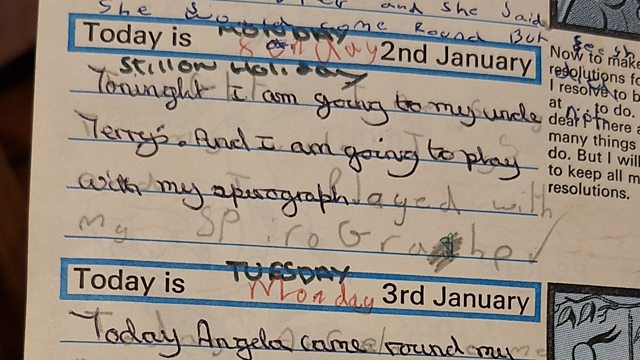 She and she said
come Round But
Today is MONDAY 2nd January
Sunday
Still on Holiday
Toninght I am going to my uncle
Terry's. And I am going to play
with my spirograph. Played with
my SPiroGraphe
Today is TUESDAY 3rd January
Monday
Today Angela came round my
Now to make
resolutions fo
I resolve to b
at to do.
dear! There
many things
do. But I will
to keep all m
resolutions.